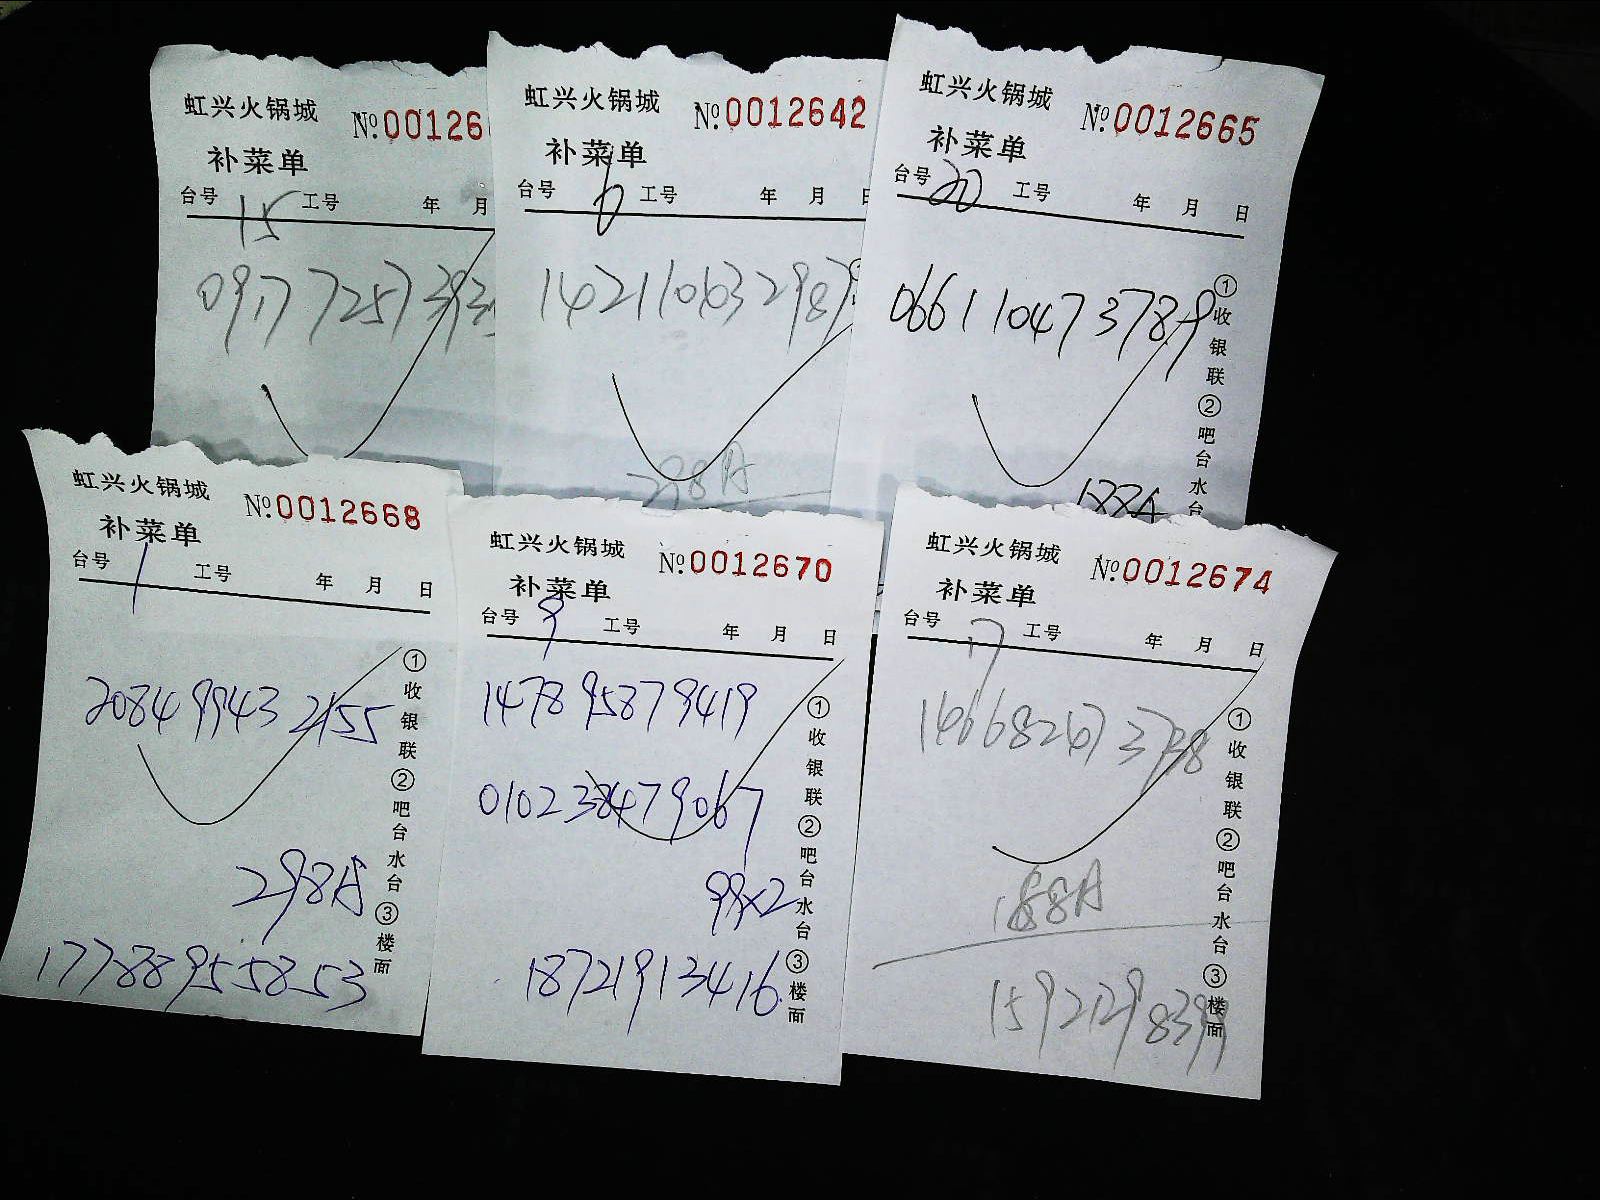 虹兴火锅城 №00126
补菜单
台号 15 工号 年 月
虹兴火锅城 №0012642
补菜单
台号 6 工号 年 月
1421 1063 2987
298A
虹兴火锅城 №0012665
补菜单
台号 20 工号 年 月 日
0661 1047 3789
188A
①收银联②吧台水台
虹兴火锅城 №0012668
补菜单
台号 1 工号 年 月 日
2084 9943 2155
298A
17788955853
①收银联②吧台水台③楼面
虹兴火锅城 №0012670
补菜单
台号 9 工号 年 月 日
1478 9587 9419
0102 3847 9067
99×2
18721913416
①收银联②吧台水台③楼面
虹兴火锅城 №0012674
补菜单
台号 17 工号 年 月 日
1466 8267 3738
188A
15921298399
①收银联②吧台水台③楼面